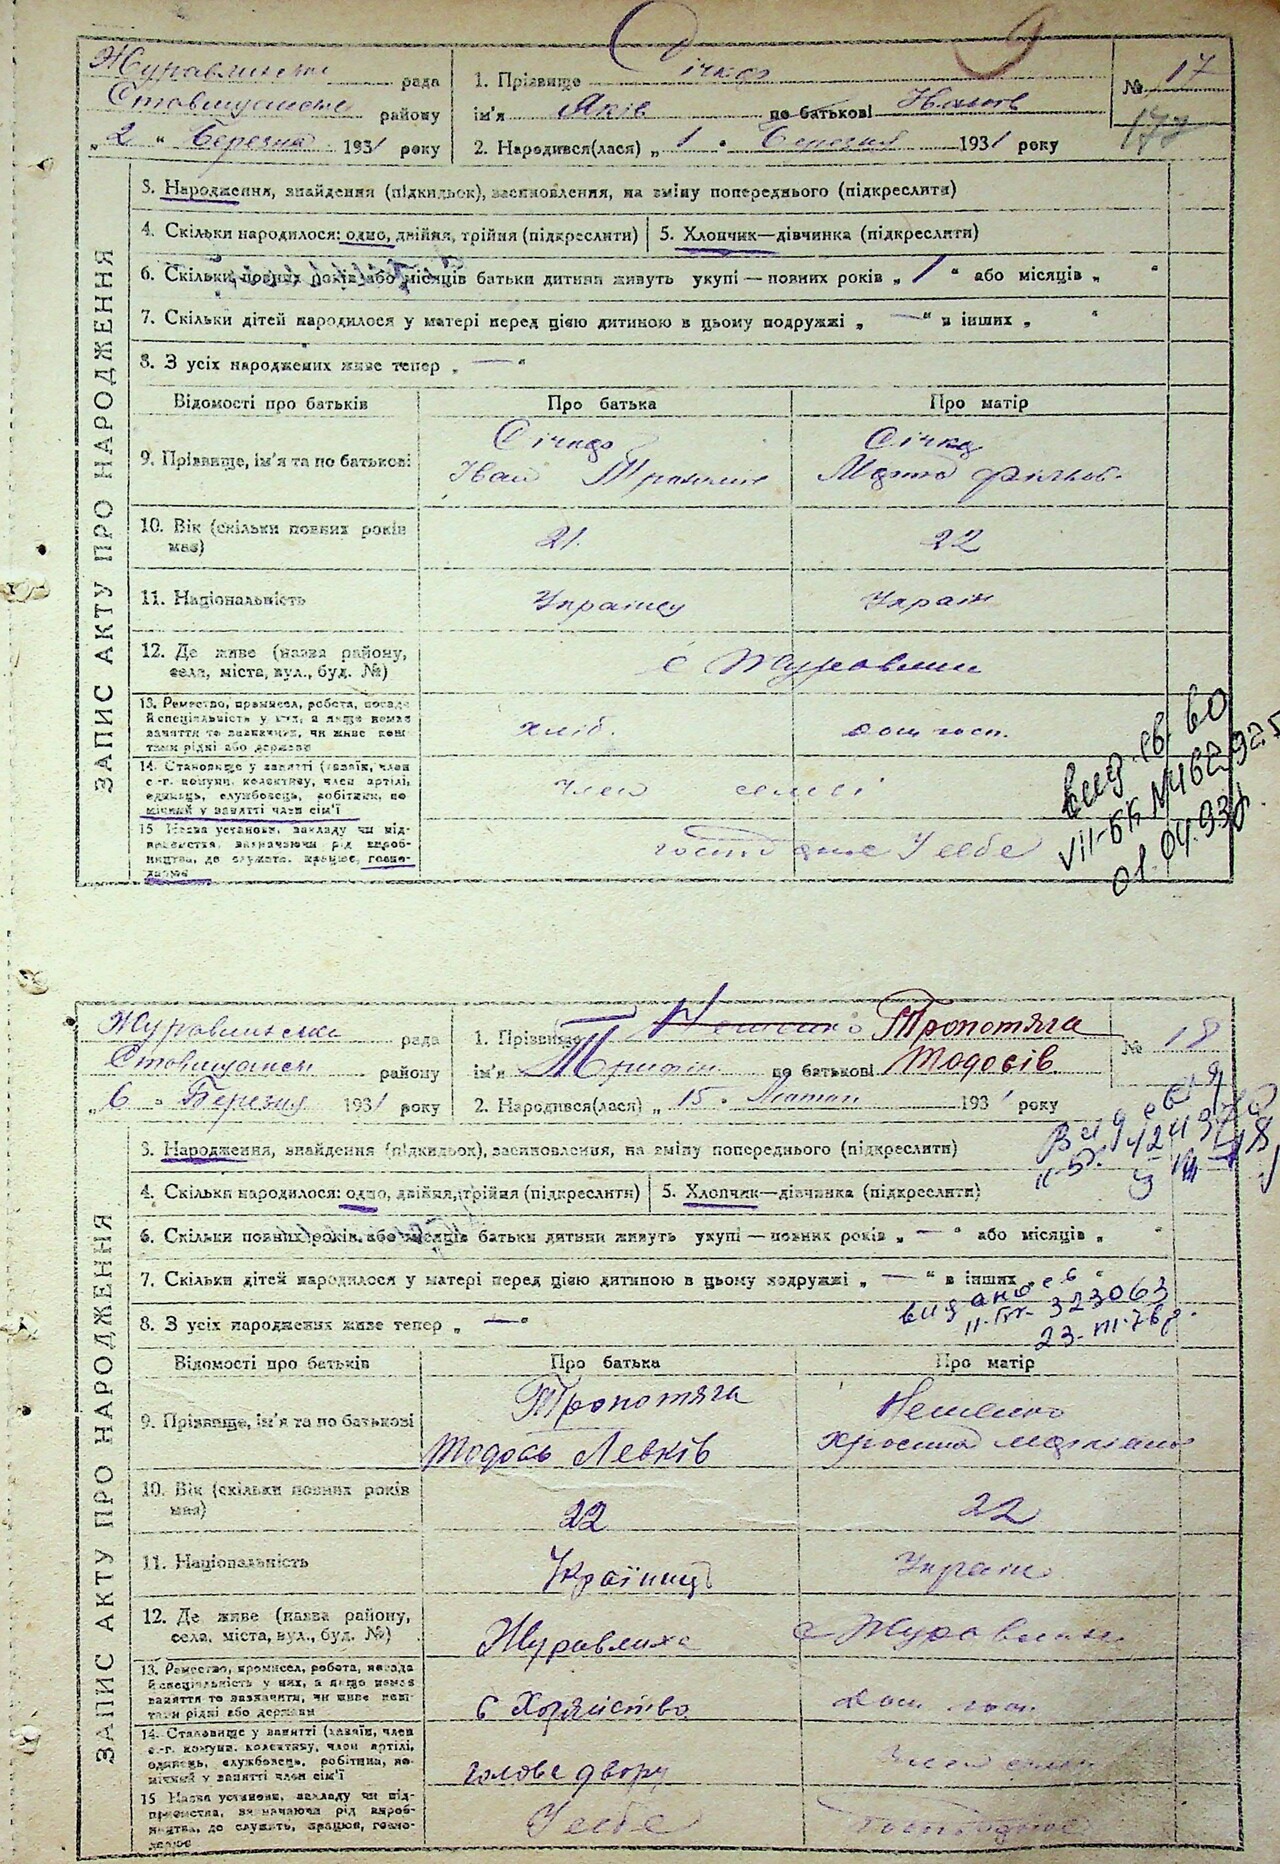 ЗАПИС АКТУ ПРО НАРОДЖЕННЯ
Журавлинська рада
Ставищанськ району
„ 2 “ Березня 1931 року
1. Прізвище Січкар
ім'я Яків по батькові Іванів
2. Народився(лася) „ 1 “ Березня 1931 року
№ 17
177
3. Народження, знайдення (підкидьок), засиновлення, на зміну попереднього (підкреслити)
4. Скільки народилося: одно, двійня, трійня (підкреслити)
5. Хлопчик—дівчинка (підкреслити)
6. Скільки повних років або місяців батьки дитини живуть укупі — повних років „ 1 “ або місяців „ “
7. Скільки дітей народилося у матері перед цією дитиною в цьому подружжі „ — “ в інших „ “
8. З усіх народжених живе тепер „ — “
Відомості про батьків Про батька Про матір
9. Прізвище, ім'я та по батькові
Січкар
Іван
Січкар
10. Вік (скільки повних років має)
21.
22
11. Національність
Українец
Украін
12. Де живе (назва району,
села, міста, вул., буд. №)
с Журавлиха
13. Ремество, промисел, робота, посада
й спеціяльність у них, а якщо немає
заняття то зазначити, чи живе кош
тами рідні або держави
хліб.
дом госп.
14. Становище у занятті (хазяїн, член
с.-г. комуни, колективу, член артілі,
одинець, службовець, робітник, по
мічний у занятті член сім'ї
член семьі
15 Назва установи, закладу чи під-
приємства, визначаючи рід вироб-
ництва, де служить, працює, госпо-
дарює
У себе
вид. св. во
VII-БК №462925
01.04.93р.
ЗАПИС АКТУ ПРО НАРОДЖЕННЯ
Журавлинська рада
Ставищанськ району
„ 6 “ Березня 1931 року
1. Прізвище Тропотяга
ім'я по батькові Тодосів
2. Народився(лася) „ 15 “ 1931 року
№ 18
3. Народження, знайдення (підкидьок), засиновлення, на зміну попереднього (підкреслити)
4. Скільки народилося: одно, двійня, трійня (підкреслити)
5. Хлопчик—дівчинка (підкреслити)
6. Скільки повних років або місяців батьки дитини живуть укупі — повних років „ — “ або місяців „ “
7. Скільки дітей народилося у матері перед цією дитиною в цьому подружжі „ — “ в інших „ “
видано св
323063
23-VII-76р.
8. З усіх народжених живе тепер „ — “
Відомості про батьків Про батька Про матір
9. Прізвище, ім'я та по батькові
Тропотяга
Тодось Левків
10. Вік (скільки повних років має)
22
22
11. Національність
Українець
Украін
12. Де живе (назва району,
села, міста, вул., буд. №)
Журавлиха
с Журавлиха
13. Ремество, промисел, робота, посада
й спеціяльність у них, а якщо немає
заняття то зазначити, чи живе кош
тами рідні або держави
С Хозяйство
дом госп.
14. Становище у занятті (хазяїн, член
с.-г. комуни, колективу, член артілі,
одинець, службовець, робітник, по
мічний у занятті член сім'ї
голове двору
15 Назва установи, закладу чи під-
приємства, визначаючи рід вироб-
ництва, де служить, працює, госпо-
дарює
У себе